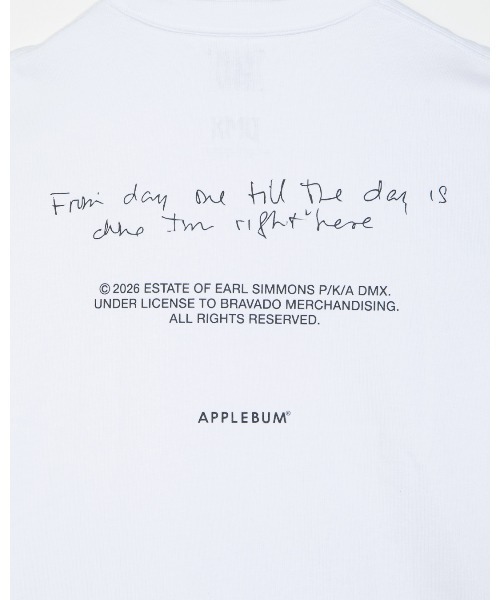 From day one till the day is
done I'm right here
© 2026 ESTATE OF EARL SIMMONS P/K/A DMX.
UNDER LICENSE TO BRAVADO MERCHANDISING.
ALL RIGHTS RESERVED.
APPLEBUM®